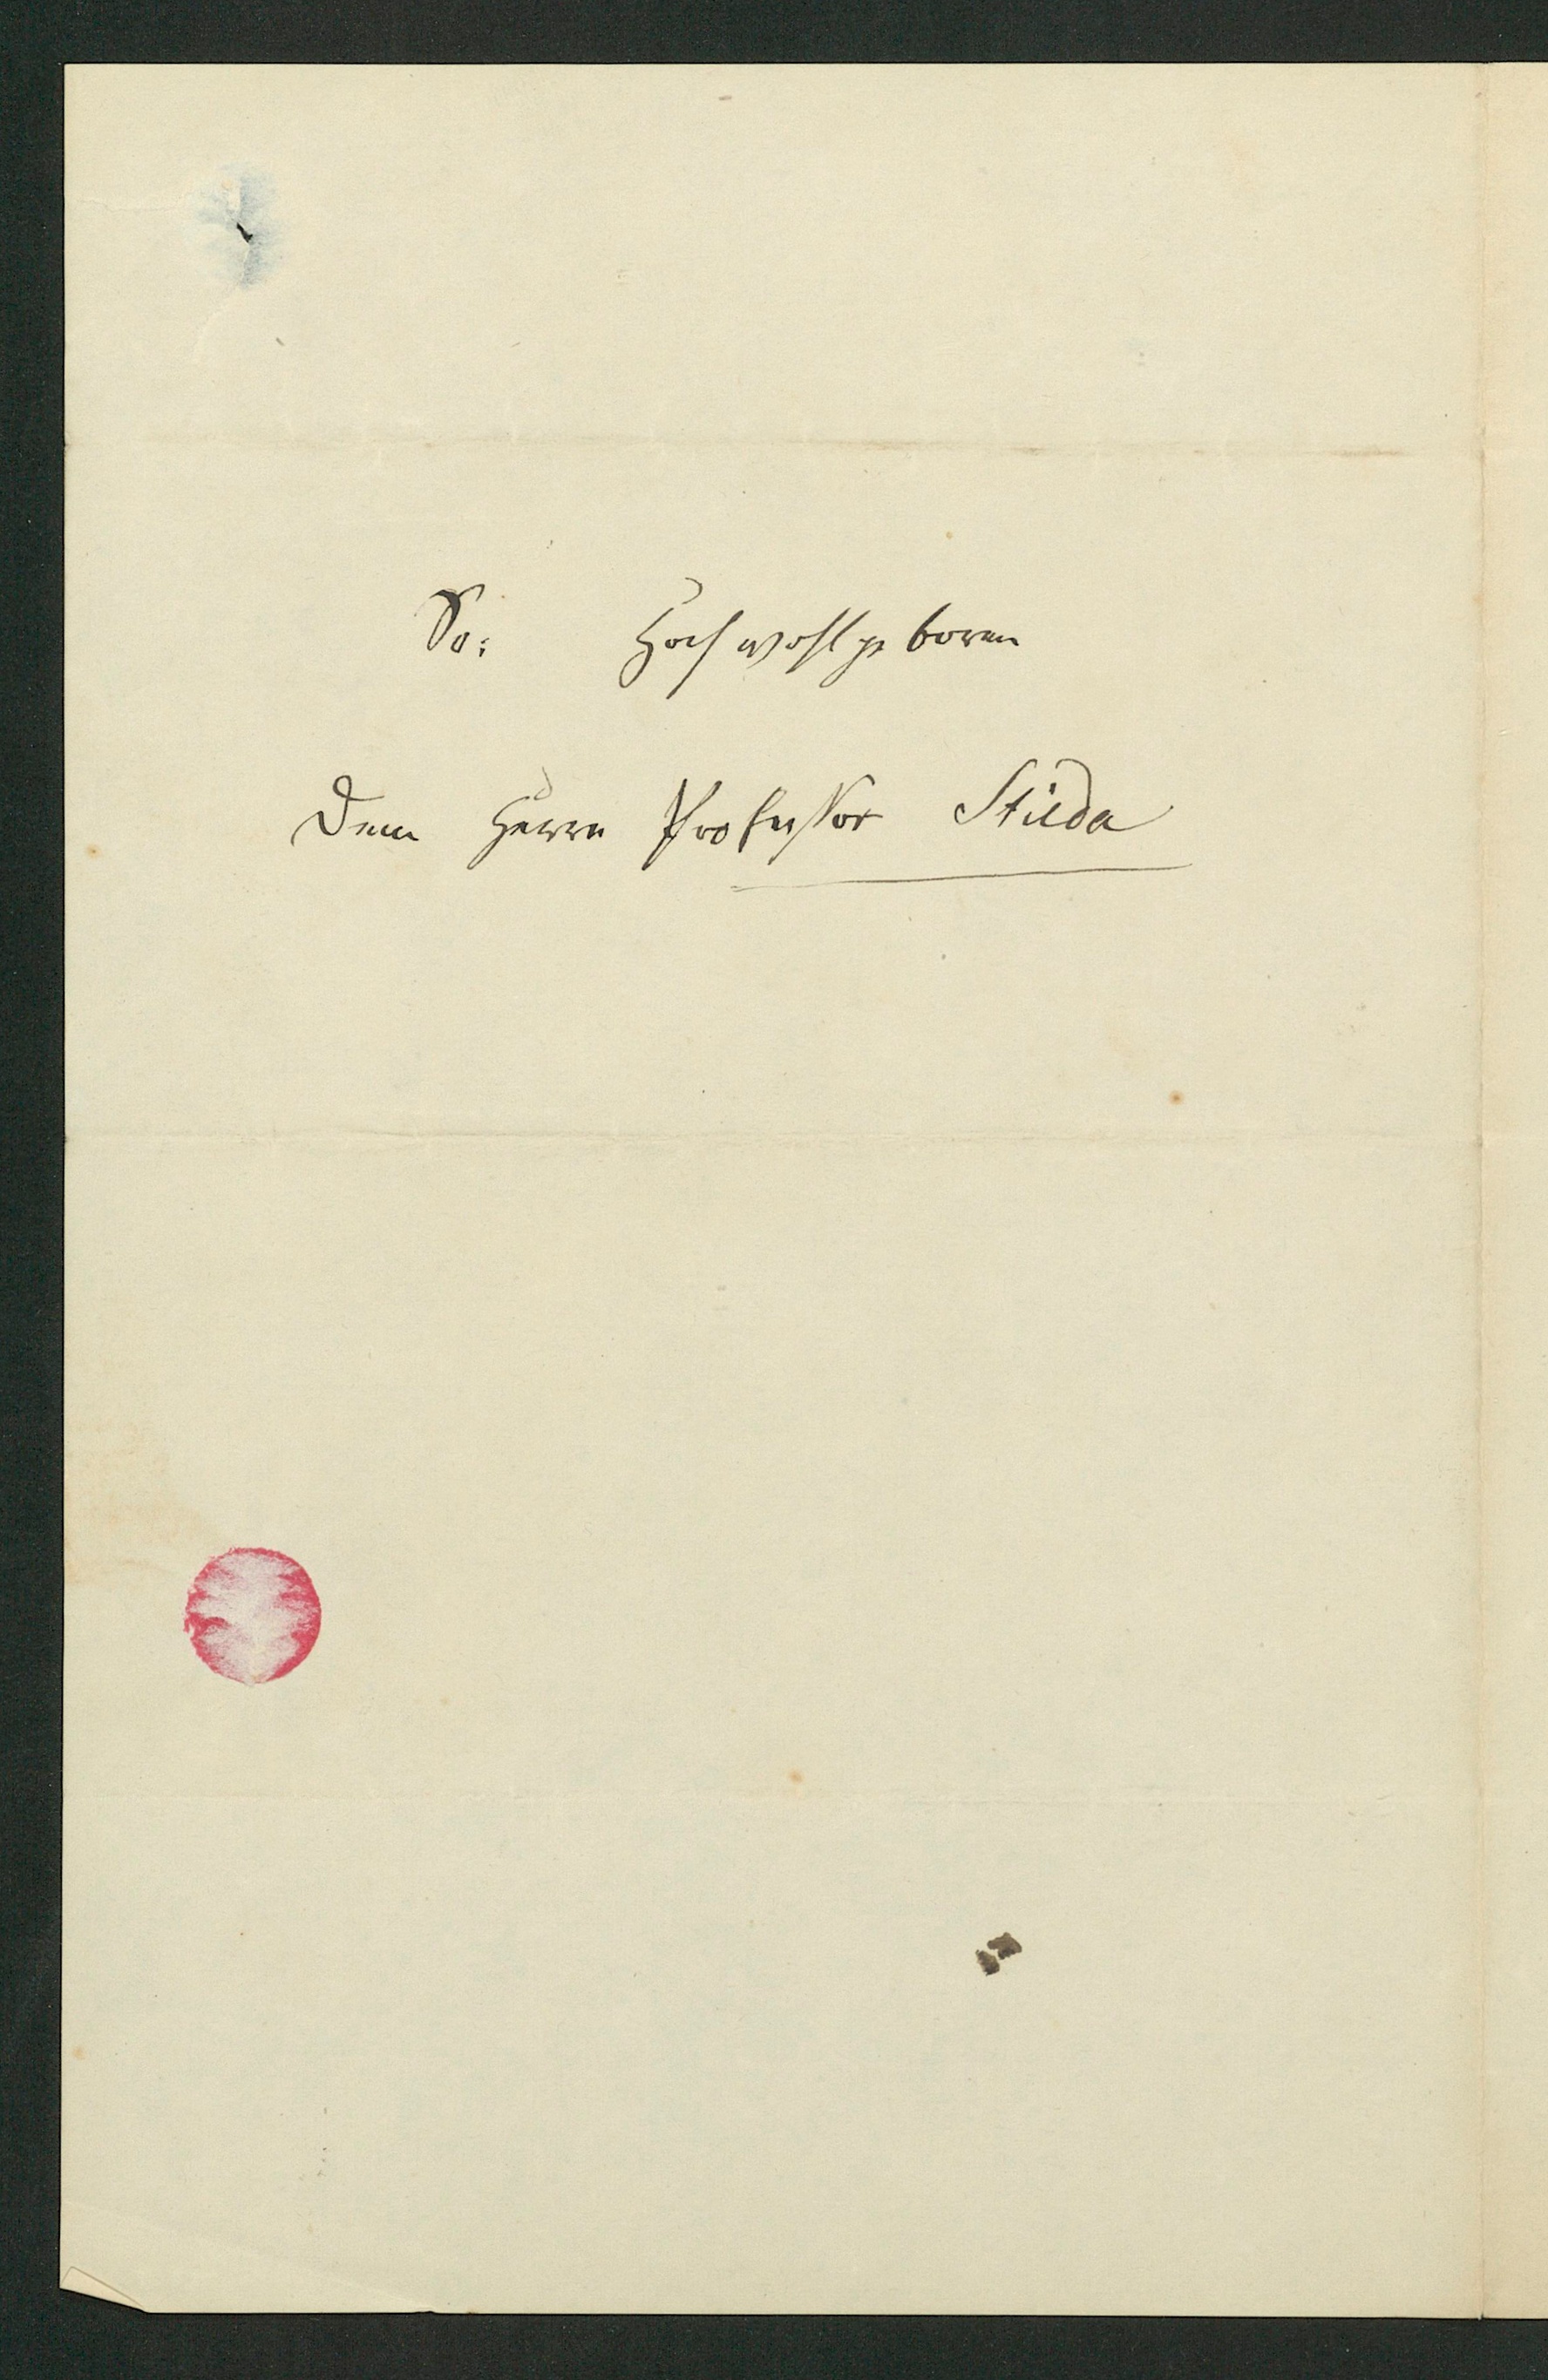 Sr: Hochwohlgeboren
Dem Herrn Professor Stieda